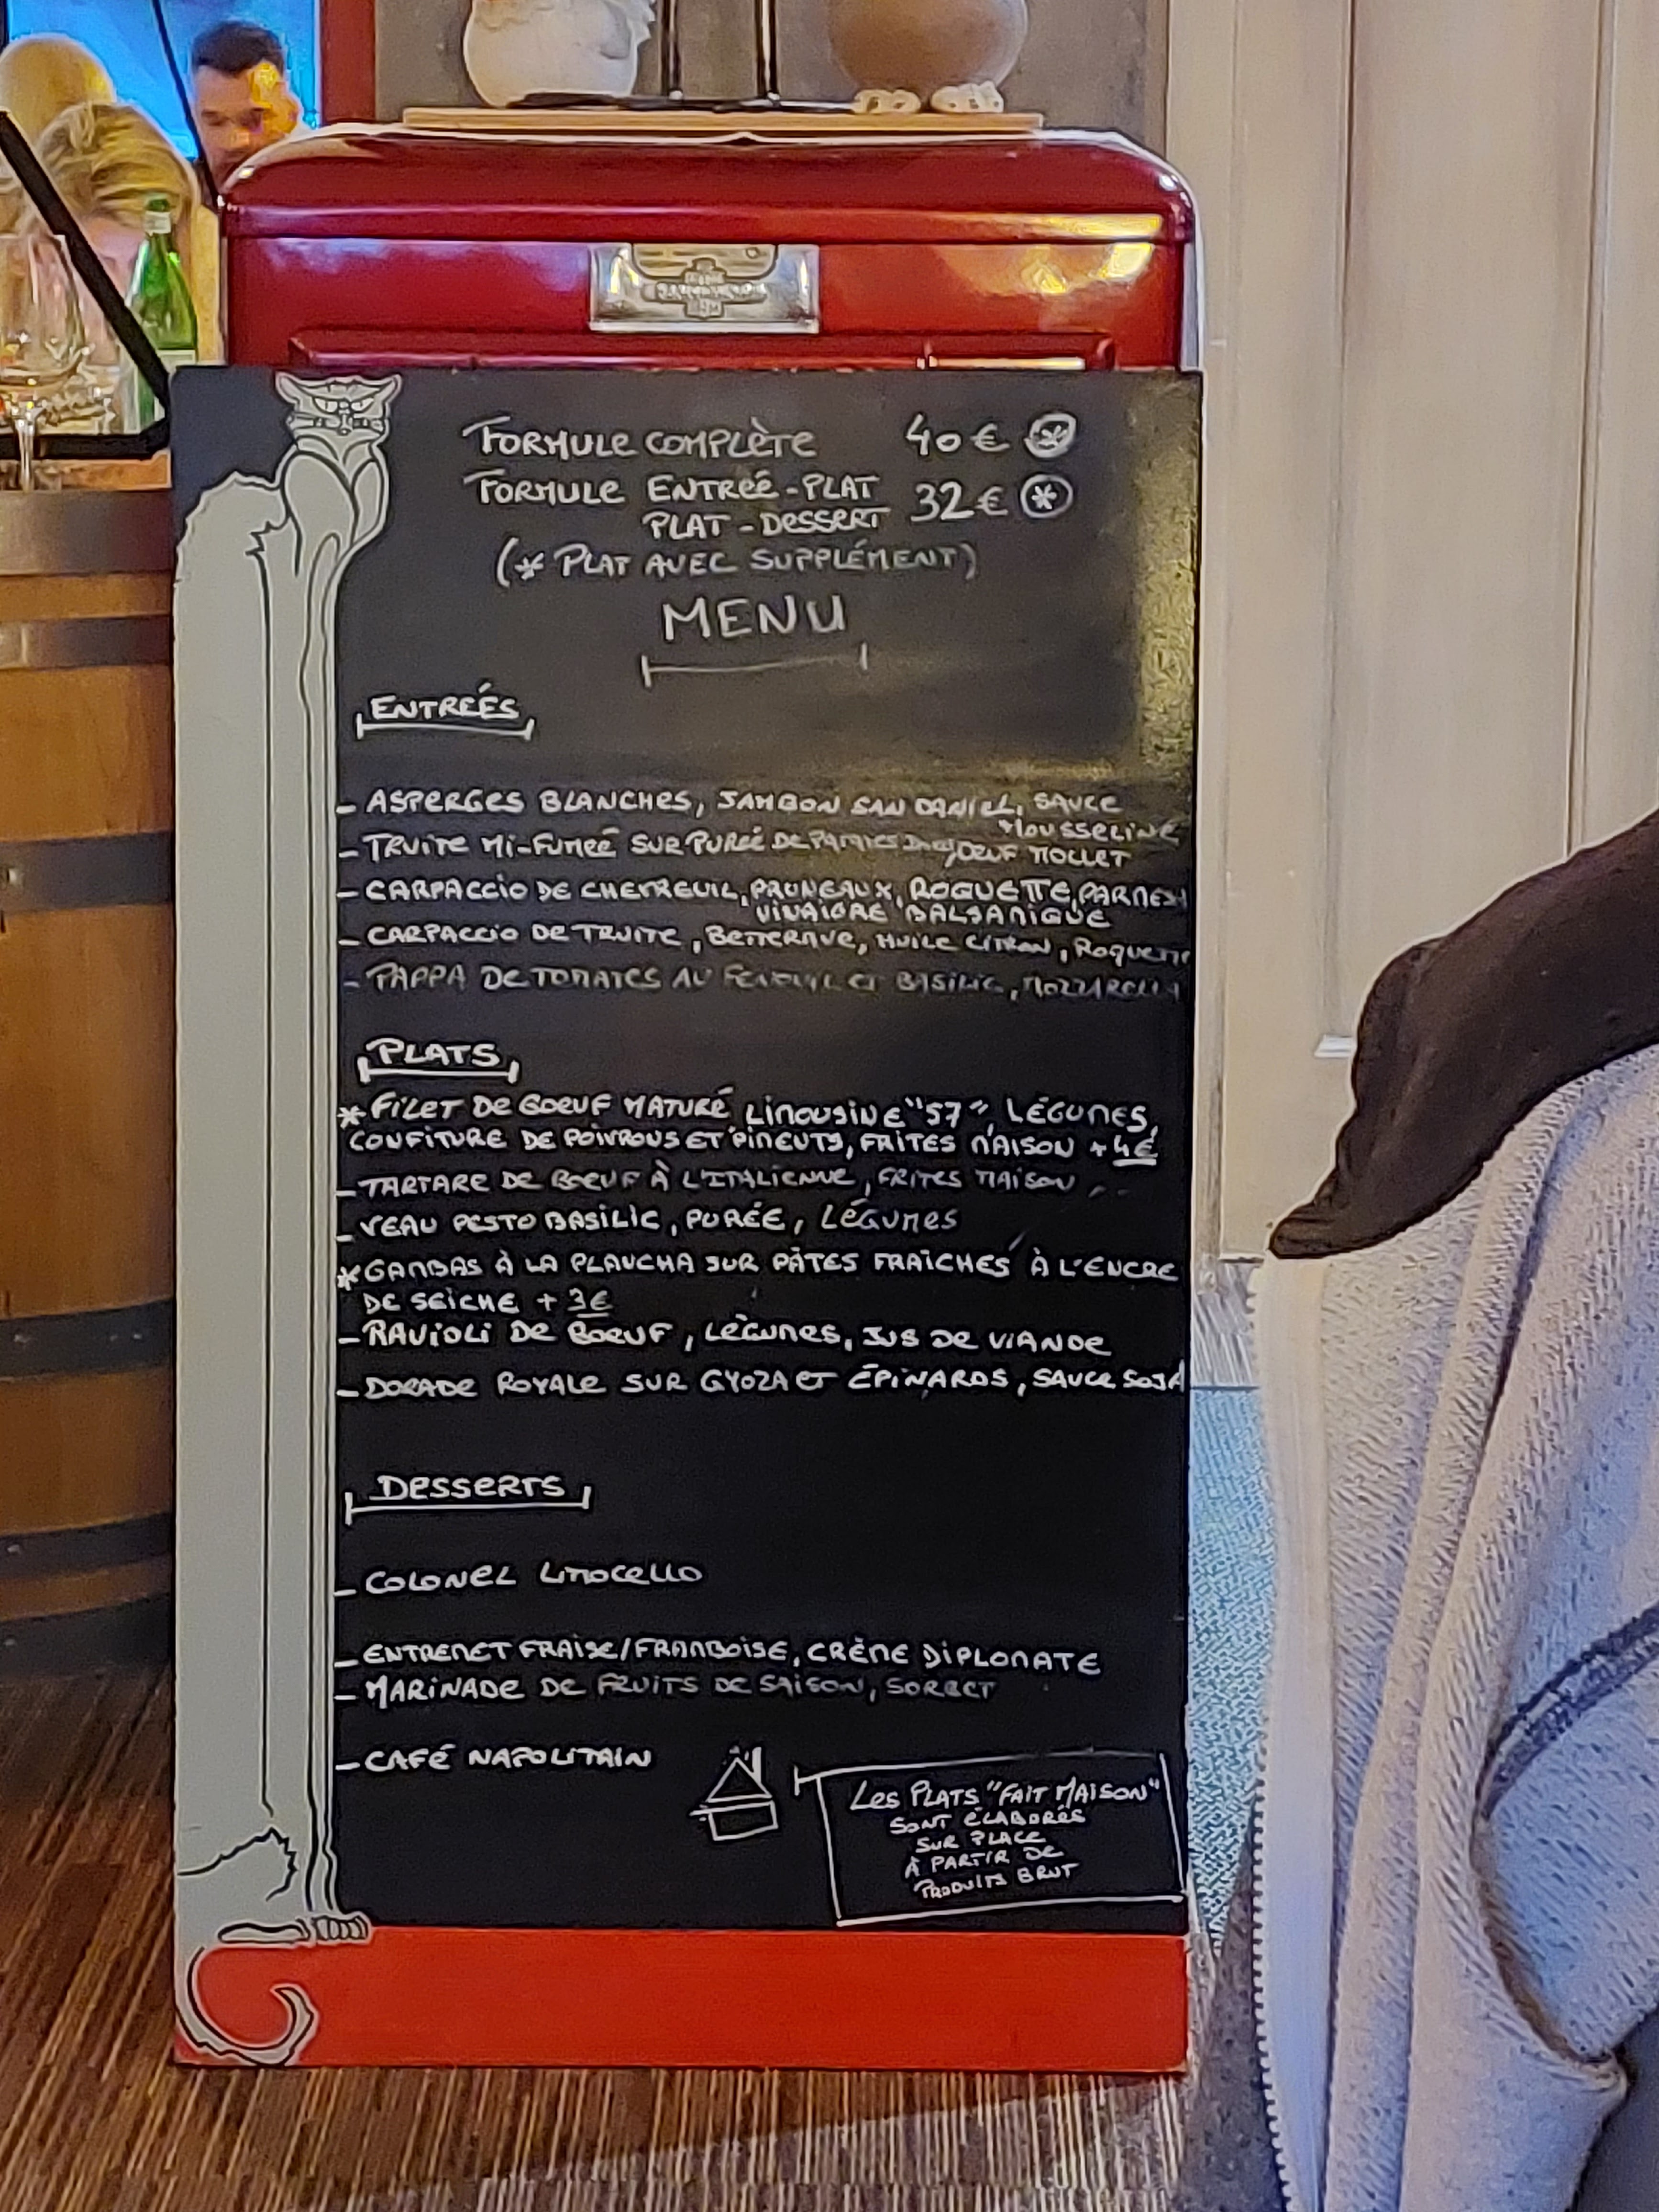 FORMULE COMPLÈTE 40 € *
FORMULE ENTREÉ-PLAT
PLAT-DESSERT 32 € *
(* PLAT AVEC SUPPLÉMENT)
MENU
ENTREÉS
- ASPERGES BLANCHES, JAMBON SAN DANIEL, SAUCE
MOUSSELINE
- TRUITE MI-FUMEÉ SUR PUREÉ DE PATATES, OEUF MOLLET
- CARPACCIO DE CHEVREUIL, PRUNEAUX, ROQUETTE, PARMESAN
VINAIGRE BALSAMIQUE
- CARPACCIO DE TRUITE, BETTERAVE, HUILE CITRON, ROQUETTE
- PAPPA DE TOMATES AU FENOUIL ET BASILIC, MOZZARELLA
PLATS
* FILET DE BOEUF MATURÉ LIMOUSINE "57", LÉGUMES,
CONFITURE DE POIVRONS ET PIMENTS, FRITES MAISON + 4€
- TARTARE DE BOEUF À L'ITALIENNE, FRITES MAISON
- VEAU PESTO BASILIC, PURÉE, LÉGUMES
* GAMBAS À LA PLANCHA SUR PÂTES FRAÎCHES À L'ENCRE
DE SEICHE + 3€
- RAVIOLI DE BOEUF, LÉGUMES, JUS DE VIANDE
- DORADE ROYALE SUR GYOZA ET ÉPINARDS, SAUCE SOJA
DESSERTS
- COLONEL LIMOCELLO
- ENTREMET FRAISE/FRAMBOISE, CRÈME DIPLOMATE
- MARINADE DE FRUITS DE SAISON, SORBET
- CAFÉ NAPOLITAIN
LES PLATS "FAIT MAISON"
SONT ÉLABORÉS
SUR PLACE
À PARTIR DE
PRODUITS BRUT